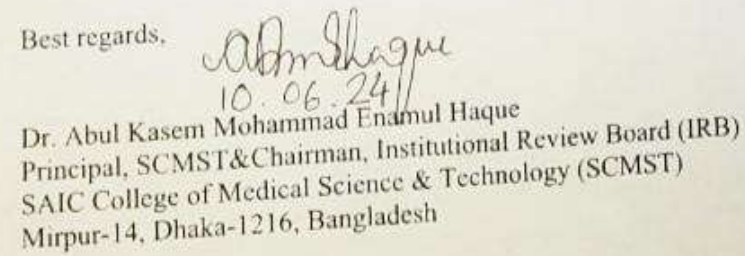 Best regards,
10.06.24
Dr. Abul Kasem Mohammad Enamul Haque
Principal, SCMST&Chairman, Institutional Review Board (IRB)
SAIC College of Medical Science & Technology (SCMST)
Mirpur-14, Dhaka-1216, Bangladesh